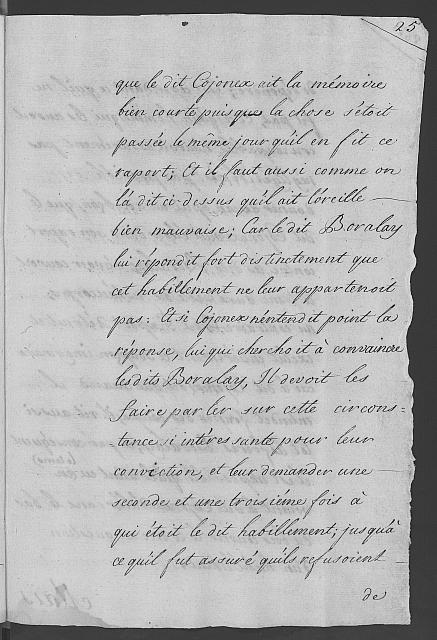 25
que le dit Cojonex ait la mémoire
bien courte puisque la chose s'étoit
passée le même jour qu'il en fit ce
raport; Et il faut aussi comme on
l'a dit ci-dessus qu'il ait l'oreille
bien mauvaise; Car le dit Boralay
lui répondit fort distinctement que
cet habillement ne leur appartenoit
pas: Et si Cojonex n'entendit point la
réponse, lui qui cherchoit à convaincre
les dits Boralay, Il devoit les
faire parler sur cette circons=
=tance si intéressante pour leur
conviction, et leur demander une
seconde et une troisiéme fois à
qui étoit le dit habillement; jusqu'à
ce qu'il fut assuré qu'ils refusoient
de